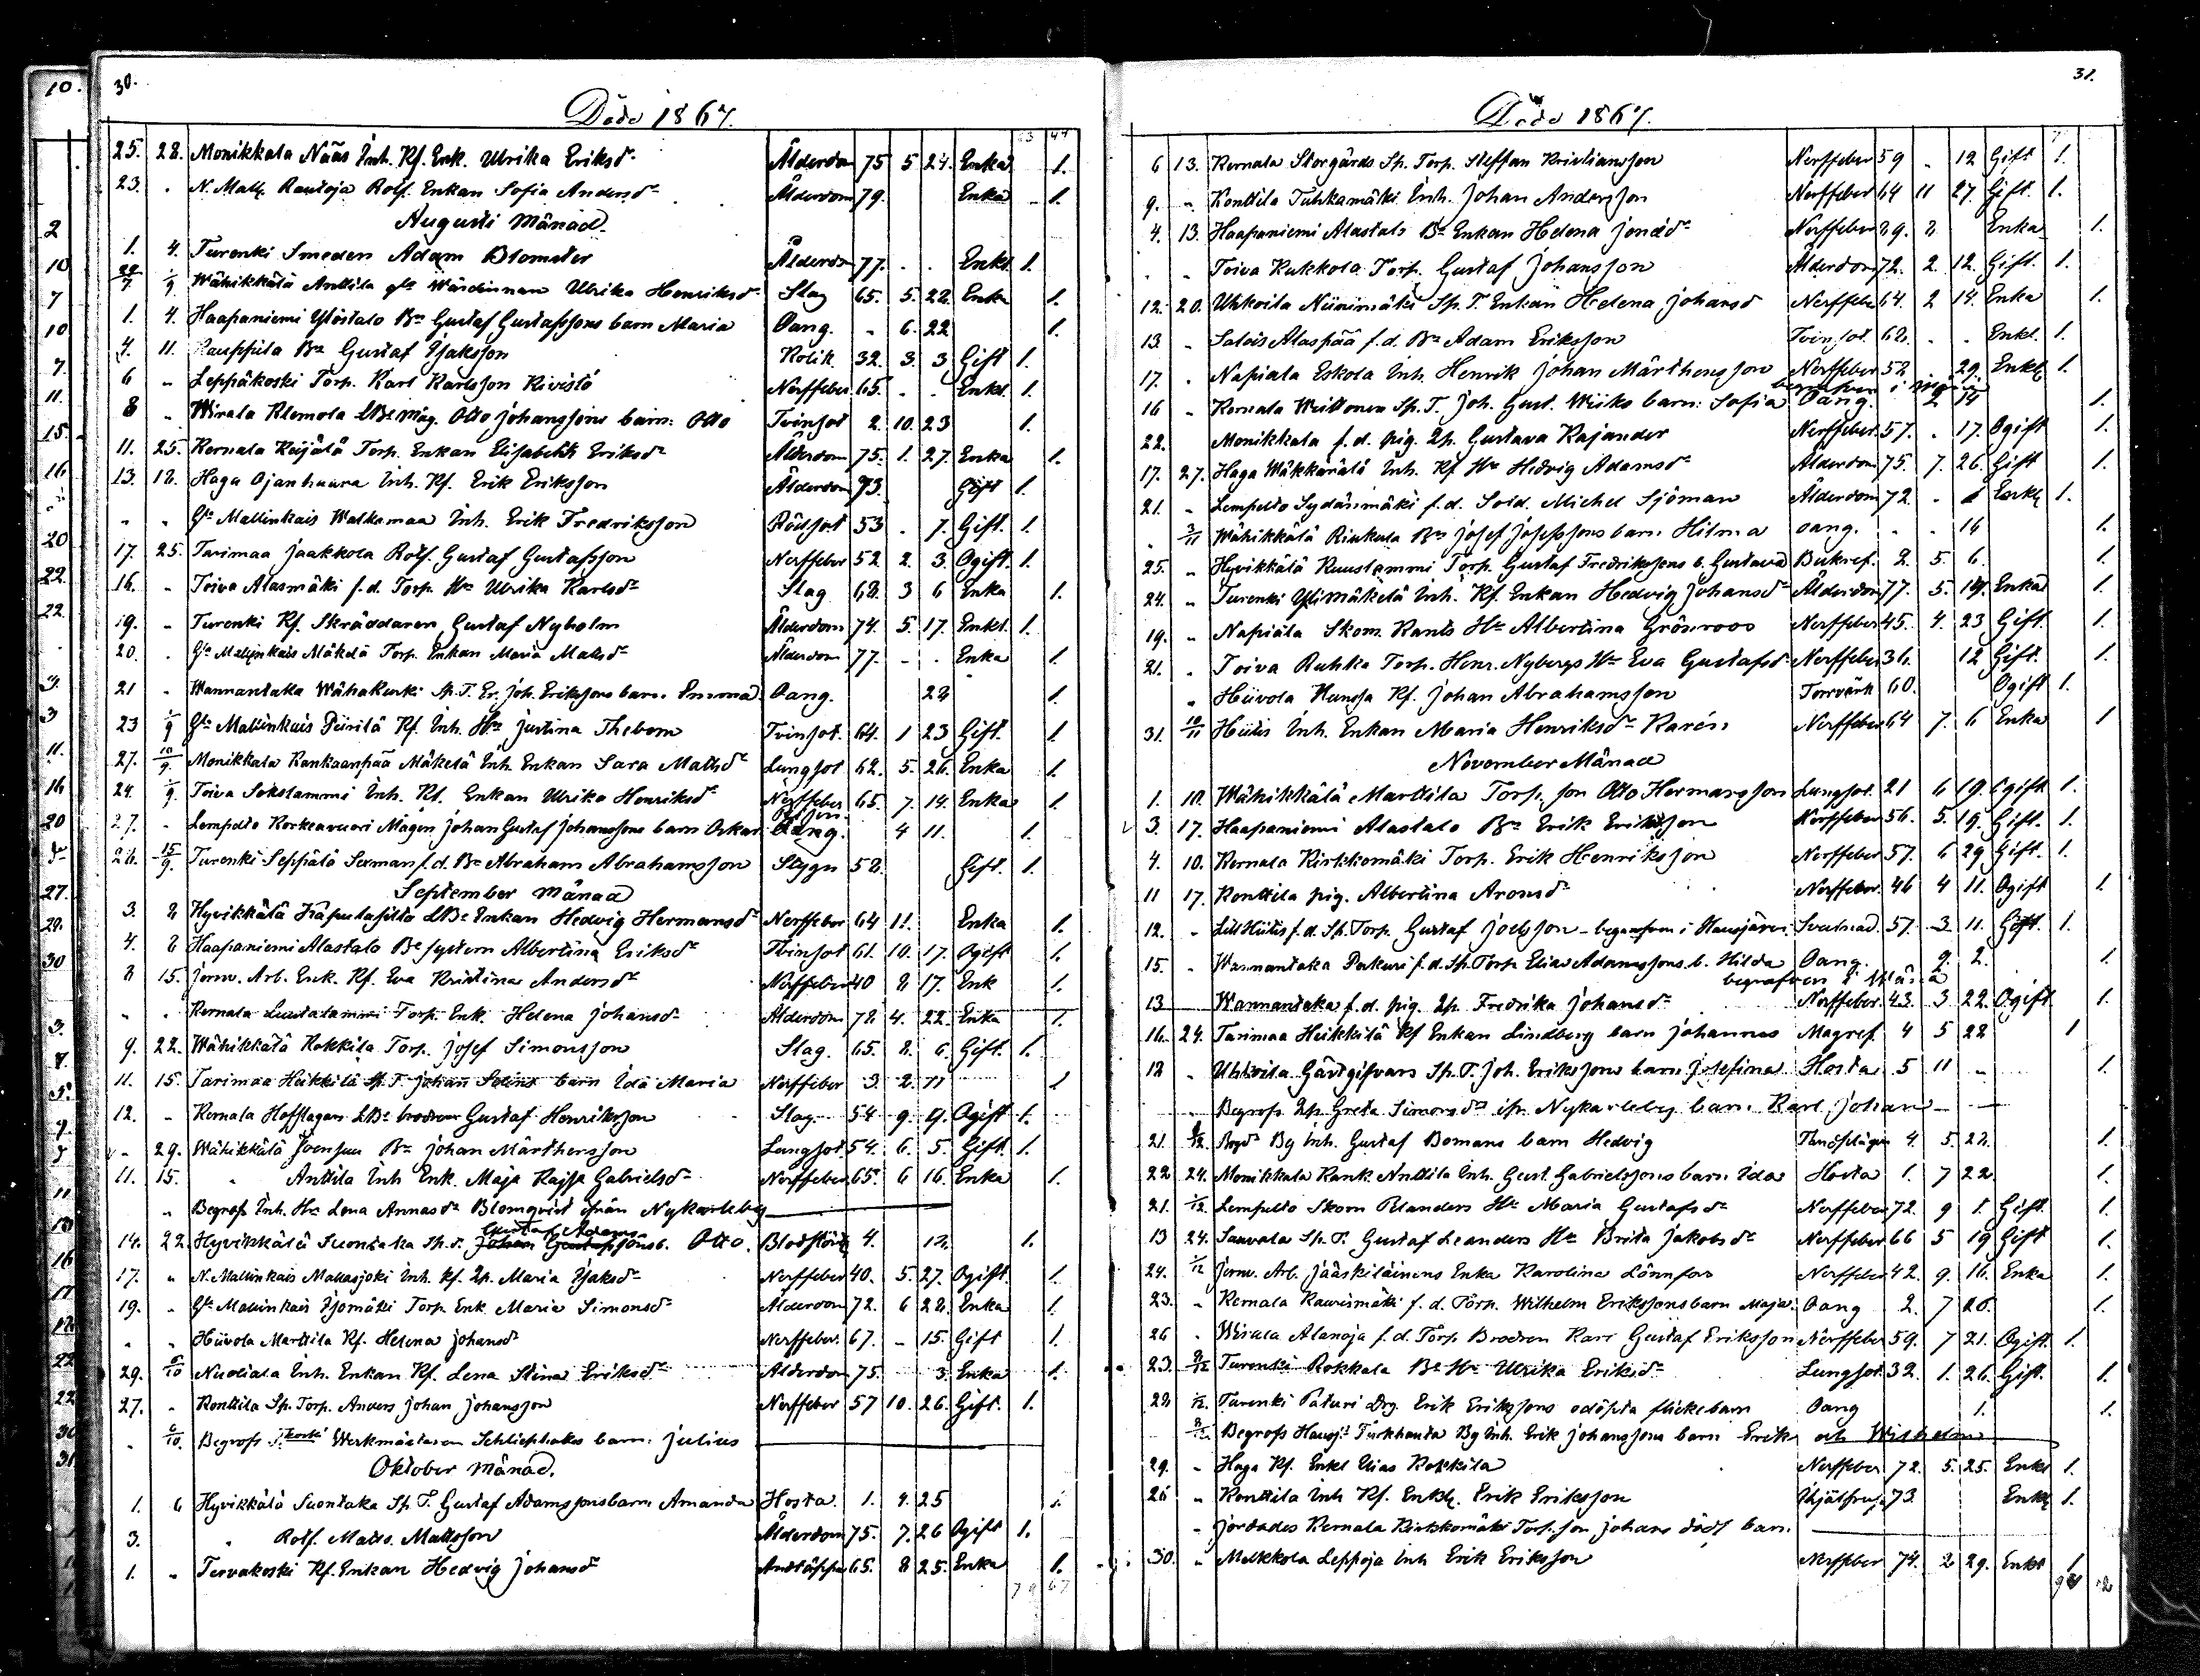 30.
Döde 1867.
25. 28. Monikkala Nääs Inh. Kf. Enk. Ulrika Eriksdr Ålderdom 75 5 24. Enka 1.
23. " N. Mall. Rautoja Rotf. Enkan Sofia Andersdr Ålderdom 79. Enka 1.
Augusti Månad.
1. 4. Turenki Smeden Adam Blomster Ålderdom 77. . . Enkl. 1.
22/7 1/9 Wähikkälä Anttila gla Wärdinnan Ulrika Henriksdr Slag 65. 5. 22. Enka 1.
1. 4. Haapaniemi Ylöstalo Bn Gustaf Gustafssons barn Maria Oang. - 6. 22 1.
4. 11. Kauppila Bn Gustaf Isaksson Kolik 32. 3. 3 Gift 1.
6 " Leppäkoski Torp. Karl Karlsson Kivistö Nerffeber 65. . . Enkl. 1.
8 " Wirala Klemola Måg. Otto Johanssons barn: Otto Tvinsot 2. 10. 23 1.
11. 25. Kernala Torp. Enkan Elisabeth Eriksdr Ålderdom 75. 1. 27. Enka 1.
13. 18. Haga Ojanhaara Inh. Kf. Erik Eriksson Ålderdom 73. Gift 1.
" " Gla Mallinkais Walkamaa Inh. Erik Fredriksson Rödsot 53 . 7. Gift. 1.
17. 25. Tarimaa Jaakkola Rotf. Gustaf Gustafsson Nerffeber 52 2. 3. Ogift. 1.
16. " Toiva Alasmäki f.d. Torp. Hu Ulrika Karlsdr Slag 62. 3 6 Enka 1.
19. " Turenki Kf. Skräddaren Gustaf Nyholm Ålderdom 74. 5. 17. Enkl. 1.
20. . Gla Mallinkais Mäkelä Torp. Enkan Maria Matsdr Ålderdom 77. - . Enka 1.
21 " Wannantaka Wähäkurki Sp. T. Er. Joh. Erikssons barn. Emma Oang. 28 1.
23 1/9 Gla Mallinkais Piirilä Kf. Inh. Hu Justina Thebom Tvinsot. 64. 1 23 Gift. 1.
27. 10/9. Monikkala Kankaanpää Mäkelä Inh. Enkan Sara Matsdr Lungsot 62. 5. 26. Enka 1.
24. 1/9. Toiva Sokslammi Inh. Kf. Enkan Ulrika Henriksdr Nerffeber 65. 7. 14. Enka 1.
27. " Lempelto Korkeavuori Mågen Johan Gustaf Johanssons barn Oskar Oang. 4 11. 1.
26. 15/9. Turenki Seppälä Sexman f.d. Bn Abraham Abrahamsson Slygn 58. Gift. 1.
September Månad
3. 8 Hyvikkälä Enkan Hedvig Hermansdr Nerffeber 64 11. Enka 1.
4. 8 Haapaniemi Alastalo Bn system Albertina Eriksdr Tvinsot 61. 10. 17. Ogift 1.
8 15. Jernv. Arb. Enk. Kf. Eva Kristina Andersdr Nerffeber 40 8 17. Enk 1.
" " Kernala Torp. Enk. Helena Johansdr Ålderdom 78. 4. 22. Enka 1.
9. 22. Wähikkälä Rokkila Torp. Josef Simonsson Slag. 65. 8. 6. Gift. 1.
11. 15. Tarimaa Heikkilä Sp. T. Johan barn Ida Maria Nerffeber 3. 2. 11 1
12. - Kernala Hofslagarn Gustaf Henriksson Slag. 54 9. 9. Ogift 1.
v - 29. Wähikkälä Joensuu Bn Johan Mårthensson Lungsot 54. 6. 5. Gift 1.
11. 15. " Anttila Inh. Enk. Maja Kajsa Gabrielsdr Nerffeber 65. 6 16. Enka 1.
" Begrofs Inh. Hu Lena Annasdr Blomqvist ifrån Nykarleby
14. 22. Hyvikkälä Suontaka Sp. T. Gustaf Adams Otto. Blodstört 4. 12. 1.
17. " N. Mallinkais Mallasjoki Inh. Kf. Qp. Maria Isaksdr Nerffeber 40. 5. 27. Ogift. 1.
19. " Gla Mallinkais Isomäki Torp. Enk. Maria Simonsdr Ålderdom 72. 6 28. Enka 1.
" " Hiivola Marttila Kf. Helena Johansdr Nerffeber. 67. - 15. Gift 1.
29. 6/10 Nuoliala Inh. Enkan Kf. Lena Stina Eriksdr Ålderdom 75. 3. Enka 1.
27. " Konttila Sp. Torp. Anders Johan Johansson Nerffeber 57 10. 26. Gift. 1.
. 6/10. Begrofs Werkmästaren barn: Julius
Oktober Månad.
1. 6 Hyvikkälä Suontaka Sp. T. Gustaf Adamssons barn Amanda Hosta. 1. 4. 25 1.
3. " Rotf. Matts Mattsson Ålderdom 75. 7. 26 Ogift 1.
1. " Tervakoski Kf. Enkan Hedvig Johansdr Andtäppa 65. 8 25. Enka 1.
31.
Döde 1867.
6 13. Kernala Storgårds Sp. Torp. Steffan Kristiansson Nerffeber 59 . 12 Gift 1.
9. " Konttila Tuhkamäki Inh. Johan Andersson Nerffeber 64 11 27. Gift. 1.
4. 13. Haapaniemi Alastalo Bn Enkan Helena Jonasdr Nerffeber 29. 2. Enka 1.
. " Toiva Kukkola Torp. Gustaf Johansson Ålderdom 72. 2. 12. Gift. 1.
12. 20. Uhkoila Niinimäki Sp. T. Enkan Helena Johansd Nerffeber 64. 2 14. Enka 1.
13 " Salois Alaspää f.d. Bn Adam Eriksson Tvinsot. 62. . . Enkl. 1.
17. . Napiala Eskola Inh. Henrik Johan Mårthensson Nerffeber 52 29. Enkl. 1.
begrafven i
16 " Kernala Sp. T. Joh. Gust. Wiiks barn: Sofia Oang. 2 14 1.
22. Monikkala f.d. pig. Qp. Gustava Rajander Nerffeber. 57. . 17. Ogift 1.
17. 27. Haga Wäkkärälä Inh. Kf Hu Hedvig Adamsdr Ålderdom 75. 7. 26. Gift 1.
21. " Lempelto Sydänmäki f.d. Sold. Michel Sjöman Ålderdom 72. . Enkl. 1.
. 3/11 Wähikkälä Bn Josef Josefssons barn Hilma oang. . . 14 1.
25. " Hyvikkälä Kuuslammi Torp. Gustaf Fredrikssons b. Gustava Bukref. 2. 5. 6. 1.
24. " Turenki Ylimäkelä Inh. Kf. Enkan Hedvig Johansdr Ålderdom 77. 5. 19. Enka 1.
19. " Napiala Skom. Hu Albertina Grönroos Nerffeber 45. 4. 23 Gift. 1.
21. . Toiva Ruhka Torp. Henr. Nybergs Hu Eva Gustafsdr Nerffeber 36. 12 Gift. 1.
" Hiivola Hunsa Kf. Johan Abrahamsson Torrvärk 60. Ogift 1.
31. 10/11 Hiitis Inh. Enkan Maria Henriksdr Karén Nerffeber 64 7. 6 Enka 1
November Månad
1. 10. Wähikkälä Marttila Torp. son Otto Hermansson Lungsot. 21 6 19. Ogift 1.
v 3. 17. Haapaniemi Alastalo Bn Erik Eriksson Nerffeber 56. 5. 19. Gift. 1.
4. 10. Kernala Kirkkomäki Torp. Erik Henriksson Nerffeber 57. 6 29 Gift. 1.
11 17. Konttila pig. Albertina Aronsdr Nerffeber. 46 4 11. Ogift 1.
12. " Lill Hiitis f.d. Sp. Torp. Gustaf Joelsson - begrafven i Hausjärvi. 57. 3. 11. Gift. 1.
15. " Wannantaka Perkuri f.d. Sp. Torp. Elias Adamssons b. Hilda Oang. 9 2. 1.
begrafven i
13 Wannantaka f.d. pig. Qp. Fredrika Johansdr Nerffeber. 43. 3 22. Ogift 1.
16. 24. Tarimaa Heikkilä Kf Enkan Lindberg barn Johannes Magref. 4 5 22 1
12 " Uhkoila Gästgifvars Sp. T. Joh. Erikssons barn Josefina Hosta 5 11 - 1.
" Begrofs Qp. Greta Simonsdr ifr. Nykarleby barn. Karl Johan
21. 8/12. By Inh. Gustaf Bomans barn Hedvig 4. 5. 22. 1.
22 24. Monikkala Kank. Anttila Inh. Gust. Gabrielssons barn Ida Hosta 1. 7 22 1.
21. 1/12. Lempelto Skom Relanders Hu Maria Gustafsdr Nerffeber 72. 9 1. Gift. 1.
13 24. Sauvala Sp. T. Gustaf Leanders Hu Brita Jakobsdr Nerffeber 66 5 19 Gift 1.
24. 1/12 Jernv. Arb. Jääskeläinens Enka Karolina Lönnfors Nerffeber 42. 9. 16. Enka 1.
23. " Kernala Kaurismäki f.d. Torp. Wilhelm Erikssons barn Maja. Oang 2. 7 26. 1.
26 " Wirala Alanoja f.d. Torp. Brodren Karl Gustaf Eriksson Nerffeber 59. 7 21. Ogift. 1.
23. 8/12 Turenki Rokkala Bn Hu Ulrika Eriksdr Lungsot. 32. 1. 26. Gift. 1.
28 1/12. Turenki Paturi Drg. Erik Erikssons odöpta flickebarn Oang 1. 1.
8/12. Begrofs Hausjr Turkhauta By Inh. Erik Johanssons barn Erik och Wilhelm
29. " Haga Kf. Enkl Elias Rokkila Nerffeber 72. 5. 25. Enkl 1.
26 " Konttila Inh. Kf. Enkl. Erik Eriksson 73. Enkl 1.
" Jordades Kernala Kirkkomäki Torp. son Johans död f barn.
30. " Melkkola Leppoja Inh Erik Eriksson Nerffeber 74. 2 29. Enkl 1